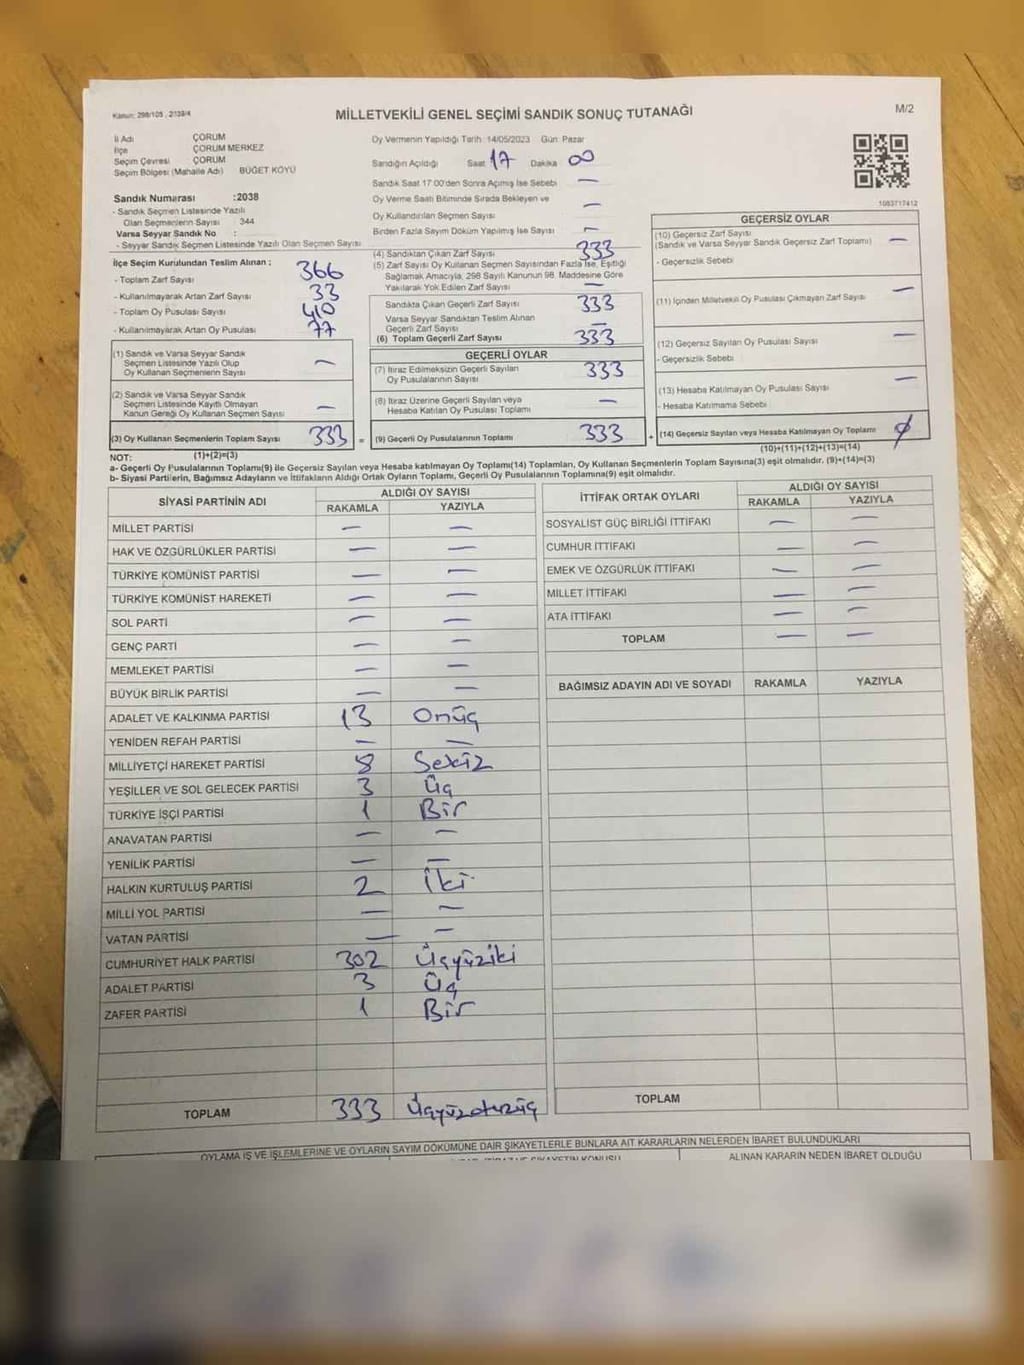 Kanun: 298/105, 2139/4
MİLLETVEKİLİ GENEL SEÇİMİ SANDIK SONUÇ TUTANAĞI
M/2
İl Adı ÇORUM
İlçe ÇORUM MERKEZ
Seçim Çevresi ÇORUM
Seçim Bölgesi (Mahalle Adı) BÜĞET KÖYÜ
Sandık Numarası :2038
- Sandık Seçmen Listesinde Yazılı
Olan Seçmenlerin Sayısı : 344
Varsa Seyyar Sandık No :
- Seyyar Sandık Seçmen Listesinde Yazılı Olan Seçmen Sayısı
Oy Vermenin Yapıldığı Tarih: 14/05/2023 Gün: Pazar
Sandığın Açıldığı Saat 17 Dakika 00
Sandık Saat 17:00'den Sonra Açılmış İse Sebebi —
Oy Verme Saati Bitiminde Sırada Bekleyen ve
Oy Kullandırılan Seçmen Sayısı —
Birden Fazla Sayım Döküm Yapılmış İse Sayısı —
1083717412
İlçe Seçim Kurulundan Teslim Alınan :
- Toplam Zarf Sayısı 366
- Kullanılmayarak Artan Zarf Sayısı 33
- Toplam Oy Pusulası Sayısı 410
- Kullanılmayarak Artan Oy Pusulası 77
(1) Sandık ve Varsa Seyyar Sandık
Seçmen Listesinde Yazılı Olup
Oy Kullanan Seçmenlerin Sayısı —
(2) Sandık ve Varsa Seyyar Sandık
Seçmen Listesinde Kayıtlı Olmayan
Kanun Gereği Oy Kullanan Seçmen Sayısı —
(3) Oy Kullanan Seçmenlerin Toplam Sayısı 333 =
(4) Sandıktan Çıkan Zarf Sayısı 333
(5) Zarf Sayısı Oy Kullanan Seçmen Sayısından Fazla İse, Eşitliği
Sağlamak Amacıyla, 298 Sayılı Kanunun 98. Maddesine Göre
Yakılarak Yok Edilen Zarf Sayısı —
Sandıkta Çıkan Geçerli Zarf Sayısı 333
Varsa Seyyar Sandıktan Teslim Alınan
Geçerli Zarf Sayısı —
(6) Toplam Geçerli Zarf Sayısı 333
GEÇERLİ OYLAR
(7) İtiraz Edilmeksizin Geçerli Sayılan
Oy Pusulalarının Sayısı 333
(8) İtiraz Üzerine Geçerli Sayılan veya
Hesaba Katılan Oy Pusulası Toplamı —
(9) Geçerli Oy Pusulalarının Toplamı 333 +
GEÇERSİZ OYLAR
(10) Geçersiz Zarf Sayısı
(Sandık ve Varsa Seyyar Sandık Geçersiz Zarf Toplamı) —
- Geçersizlik Sebebi
(11) İçinden Milletvekili Oy Pusulası Çıkmayan Zarf Sayısı —
(12) Geçersiz Sayılan Oy Pusulası Sayısı —
- Geçersizlik Sebebi:
(13) Hesaba Katılmayan Oy Pusulası Sayısı —
- Hesaba Katılmama Sebebi
(14) Geçersiz Sayılan veya Hesaba Katılmayan Oy Toplamı
NOT: (1)+(2)=(3)
(10)+(11)+(12)+(13)=(14)
a- Geçerli Oy Pusulalarının Toplamı(9) ile Geçersiz Sayılan veya Hesaba katılmayan Oy Toplamı(14) Toplamları, Oy Kullanan Seçmenlerin Toplam Sayısına(3) eşit olmalıdır. (9)+(14)=(3)
b- Siyasi Partilerin, Bağımsız Adayların ve İttifakların Aldığı Ortak Oyların Toplamı, Geçerli Oy Pusulalarının Toplamına(9) eşit olmalıdır.
SİYASİ PARTİNİN ADI ALDIĞI OY SAYISI
RAKAMLA YAZIYLA
MİLLET PARTİSİ — —
HAK VE ÖZGÜRLÜKLER PARTİSİ — —
TÜRKİYE KOMÜNİST PARTİSİ — —
TÜRKİYE KOMÜNİST HAREKETİ — —
SOL PARTİ — —
GENÇ PARTİ — —
MEMLEKET PARTİSİ — —
BÜYÜK BİRLİK PARTİSİ — —
ADALET VE KALKINMA PARTİSİ 13 Onüç
YENİDEN REFAH PARTİSİ — —
MİLLİYETÇİ HAREKET PARTİSİ 8 Sekiz
YEŞİLLER VE SOL GELECEK PARTİSİ 3 Üç
TÜRKİYE İŞÇİ PARTİSİ 1 Bir
ANAVATAN PARTİSİ — —
YENİLİK PARTİSİ — —
HALKIN KURTULUŞ PARTİSİ 2 İki
MİLLİ YOL PARTİSİ — —
VATAN PARTİSİ — —
CUMHURİYET HALK PARTİSİ 302 Üçyüziki
ADALET PARTİSİ 3 Üç
ZAFER PARTİSİ 1 Bir
TOPLAM 333 Üçyüzotuzüç
İTTİFAK ORTAK OYLARI ALDIĞI OY SAYISI
RAKAMLA YAZIYLA
SOSYALİST GÜÇ BİRLİĞİ İTTİFAKI — —
CUMHUR İTTİFAKI — —
EMEK VE ÖZGÜRLÜK İTTİFAKI — —
MİLLET İTTİFAKI — —
ATA İTTİFAKI — —
TOPLAM — —
BAĞIMSIZ ADAYIN ADI VE SOYADI RAKAMLA YAZIYLA
TOPLAM
OYLAMA İŞ VE İŞLEMLERİNE VE OYLARIN SAYIM DÖKÜMÜNE DAİR ŞİKAYETLERLE BUNLARA AİT KARARLARIN NELERDEN İBARET BULUNDUKLARI
ALINAN KARARIN NEDEN İBARET OLDUĞU